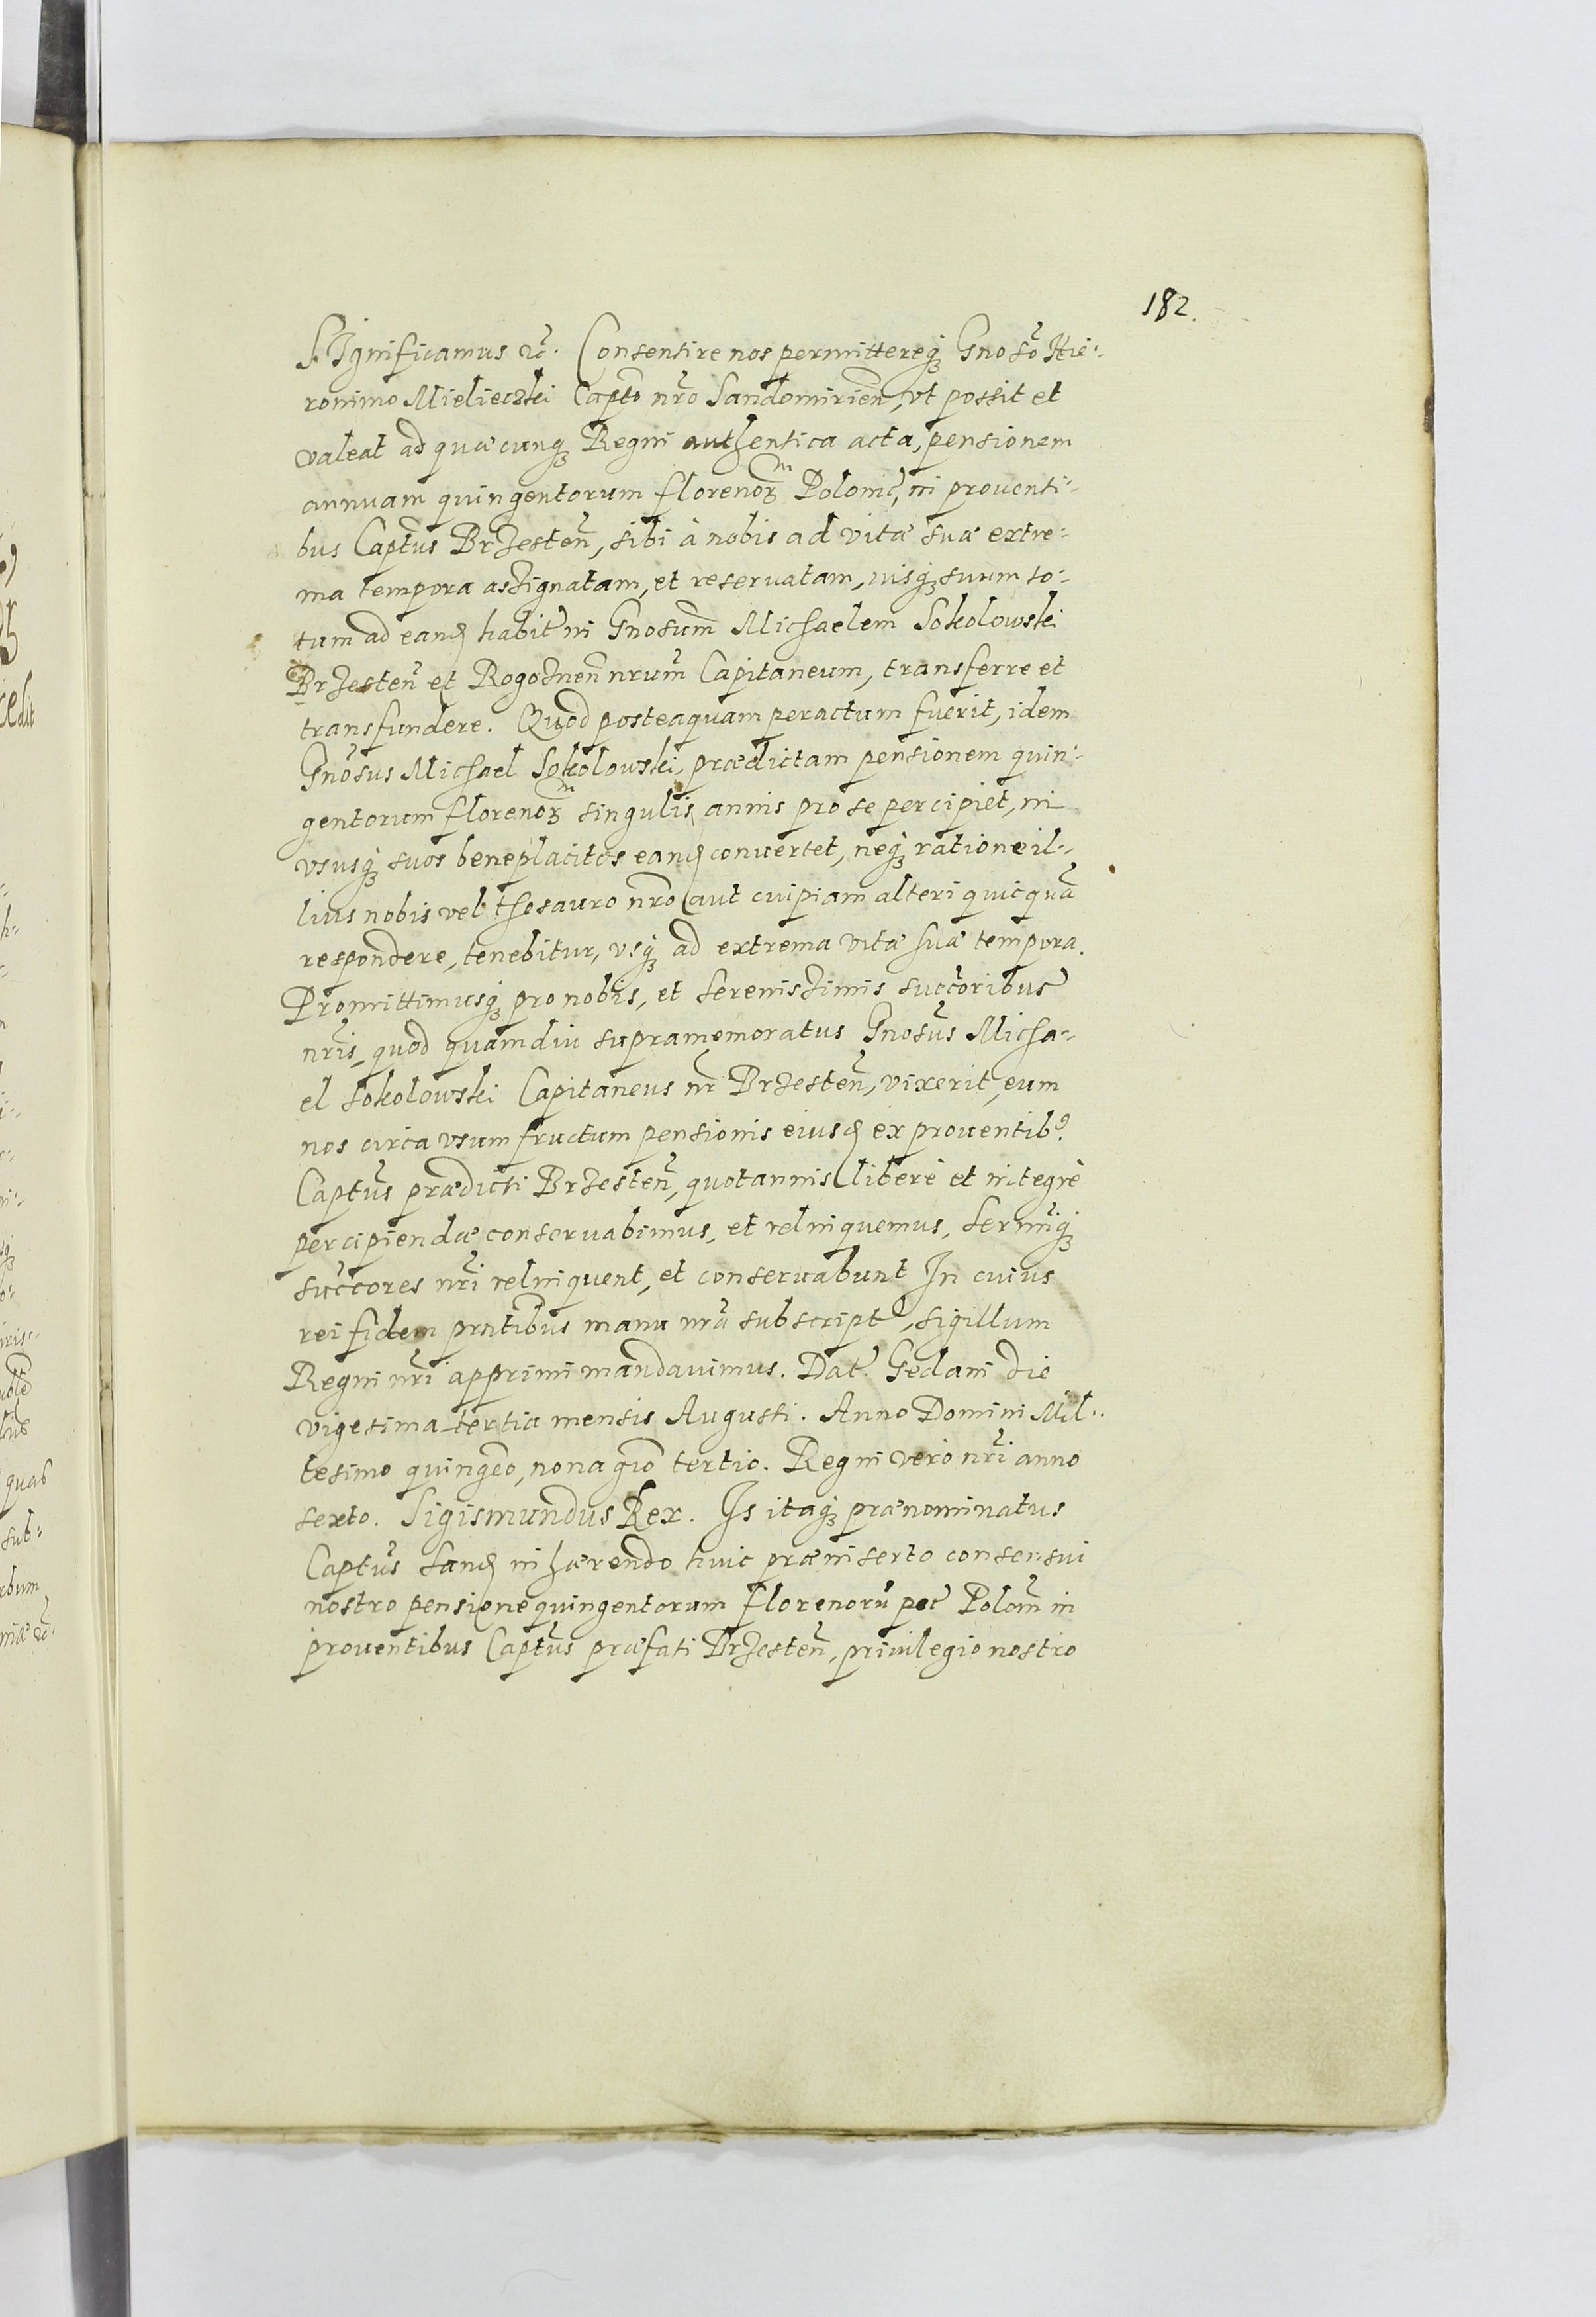 182.
SIgnificamus etc. Consentire nos permittereq3 Gnoso Hie=
ronimo Mieliecski Capto nro Sandomirien, vt possit et
valeat ad quæcunq3 Regni authentica acta, pensionem
annuam quingentorum florenorm Polonic, in prouenti=
bus Captus Brzesten, sibi à nobis ad vitæ suæ extre=
ma tempora assignatam, et reseruatam, iusq3 suum to=
tum ad eand habit in Gnosum Michaelem Sokolowski
Brzesten et Rogoznen nrum Capitaneum, transferre et
transfundere. Quod posteaquam peractum fuerit, idem
Gnosus Michael Sokolowski, prædictam pensionem quin=
gentorum florenorm singulis annis pro se percipiet, in
vsusq3 suos beneplacitos eand conuertet, neq3 ratione il=
lius nobis vel thesauro nro aut cuipiam alteri quicquã
respondere, tenebitur, vsq3 ad extrema vitæ suæ tempora.
Promittimusq3 pro nobis, et serenissimis succoribus
nris, quod quamdiu supramemoratus Gnosus Micha=
el Sokolowski Capitaneus nr Brzesten, vixerit, eum
nos circa vsumfructum pensionis eiusd ex prouentib9
Captus prædicti Brzesten, quotannis liberè et integrè
percipiendæ conseruabimus, et relinquemus, Sermiq3
succores nri relinquent, et conseruabunt In cuius
rei fidem pntibus manu nra subscript, sigillum
Regni nri apprimi mandauimus. Dat Gedani die
vigesima tertia mensis Augusti. Anno Domini Mil=
lesimo quingeo, nonagio tertio. Regni verò nri anno
sexto. Sigismundus Rex. Is itaq3 prænominatus
Captus Sand inhærendo huic præinserto consensui
nostro pensione quingentorum florenorũ pec Polon in
prouentibus Captus præfati Brzesten, priuilegio nostro